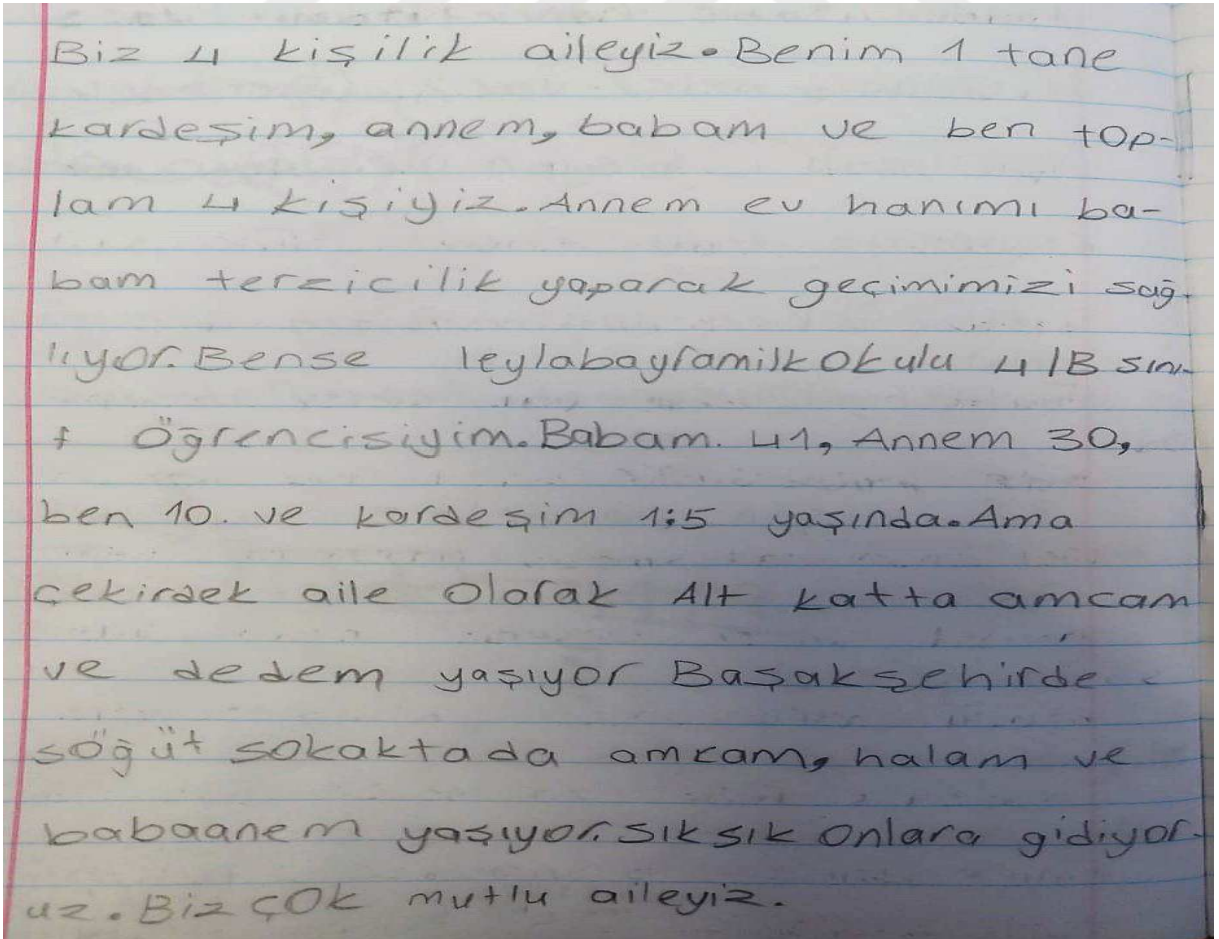 Biz 4 kişilik aileyiz. Benim 1 tane
kardeşim, annem, babam ve ben top-
lam 4 kişiyiz. Annem ev hanımı ba-
bam terzicilik yaparak geçimimizi sağ-
lıyor. Bense leylabayramilkokulu 4/B sını-
f Öğrencisiyim. Babam. 41, Annem 30,
ben 10. ve kardeşim 1:5 yaşında. Ama
çekirdek aile olarak Alt katta amcam
ve dedem yaşıyor Başakşehirde
söğüt sokaktada amcam, halam ve
babaanem yaşıyor. sık sık onlara gidiyor-
uz. Biz çok mutlu aileyiz.